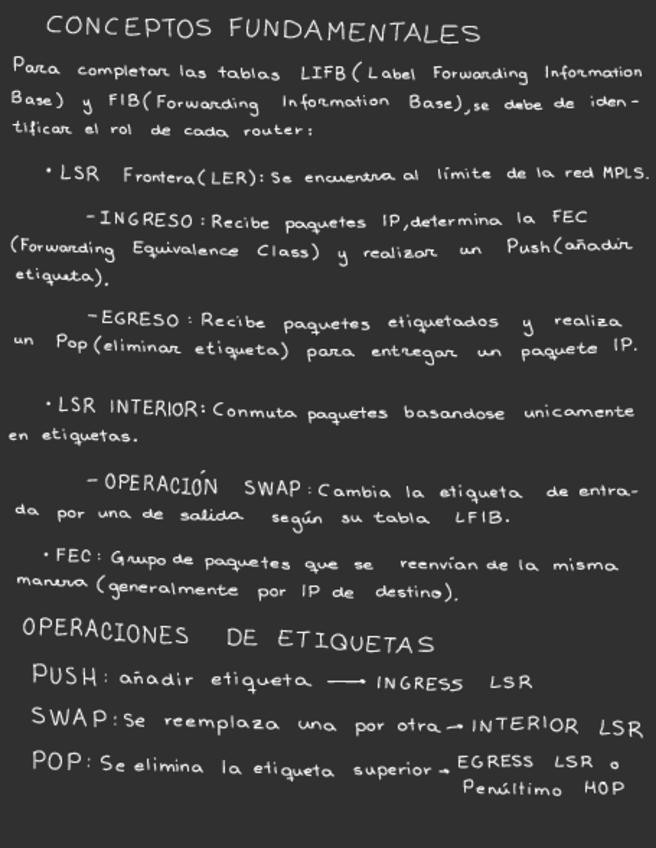 CONCEPTOS FUNDAMENTALES
Para completar las tablas LIFB (Label Forwarding Information
Base) y FIB (Forwarding Information Base), se debe de iden-
tificar el rol de cada router:
• LSR Frontera (LER): Se encuentra al límite de la red MPLS.
- INGRESO: Recibe paquetes IP, determina la FEC
(Forwarding Equivalence Class) y realizar un Push (añadir
etiqueta).
- EGRESO: Recibe paquetes etiquetados y realiza
un Pop (eliminar etiqueta) para entregar un paquete IP.
• LSR INTERIOR: Conmuta paquetes basandose unicamente
en etiquetas.
- OPERACIÓN SWAP: Cambia la etiqueta de entra-
da por una de salida según su tabla LFIB.
• FEC: Grupo de paquetes que se reenvían de la misma
manera (generalmente por IP de destino).
OPERACIONES DE ETIQUETAS
PUSH: añadir etiqueta → INGRESS LSR
SWAP: Se reemplaza una por otra → INTERIOR LSR
POP: Se elimina la etiqueta superior → EGRESS LSR o
Penúltimo HOP